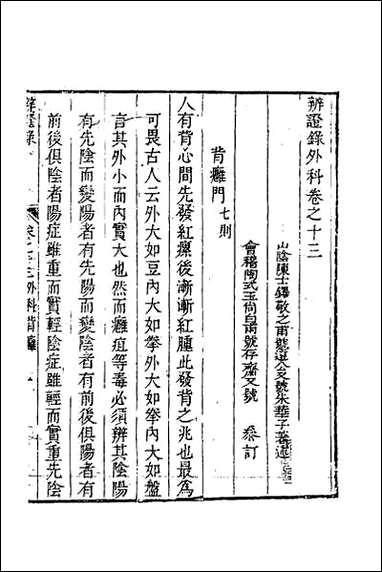 辨證錄外科卷之十三
山陰陳士鐸敬之甫號遠公又號朱華子著述
會稽陶式玉尚白甫號存齋又號 叅訂
背癰門七則
人有背心間先發紅瘰後漸漸紅腫此發背之兆也最爲
可畏古人云外大如豆內大如拳外大如拳內大如盤
言其外小而內實大也然而癰疽等毒必須辨其陰陽
有先陰而變陽者有先陽而變陰者有前後俱陽者有
前後俱陰者陽症雖重而實輕陰症雖輕而實重先陰
辨證錄 卷之十三外科背癰